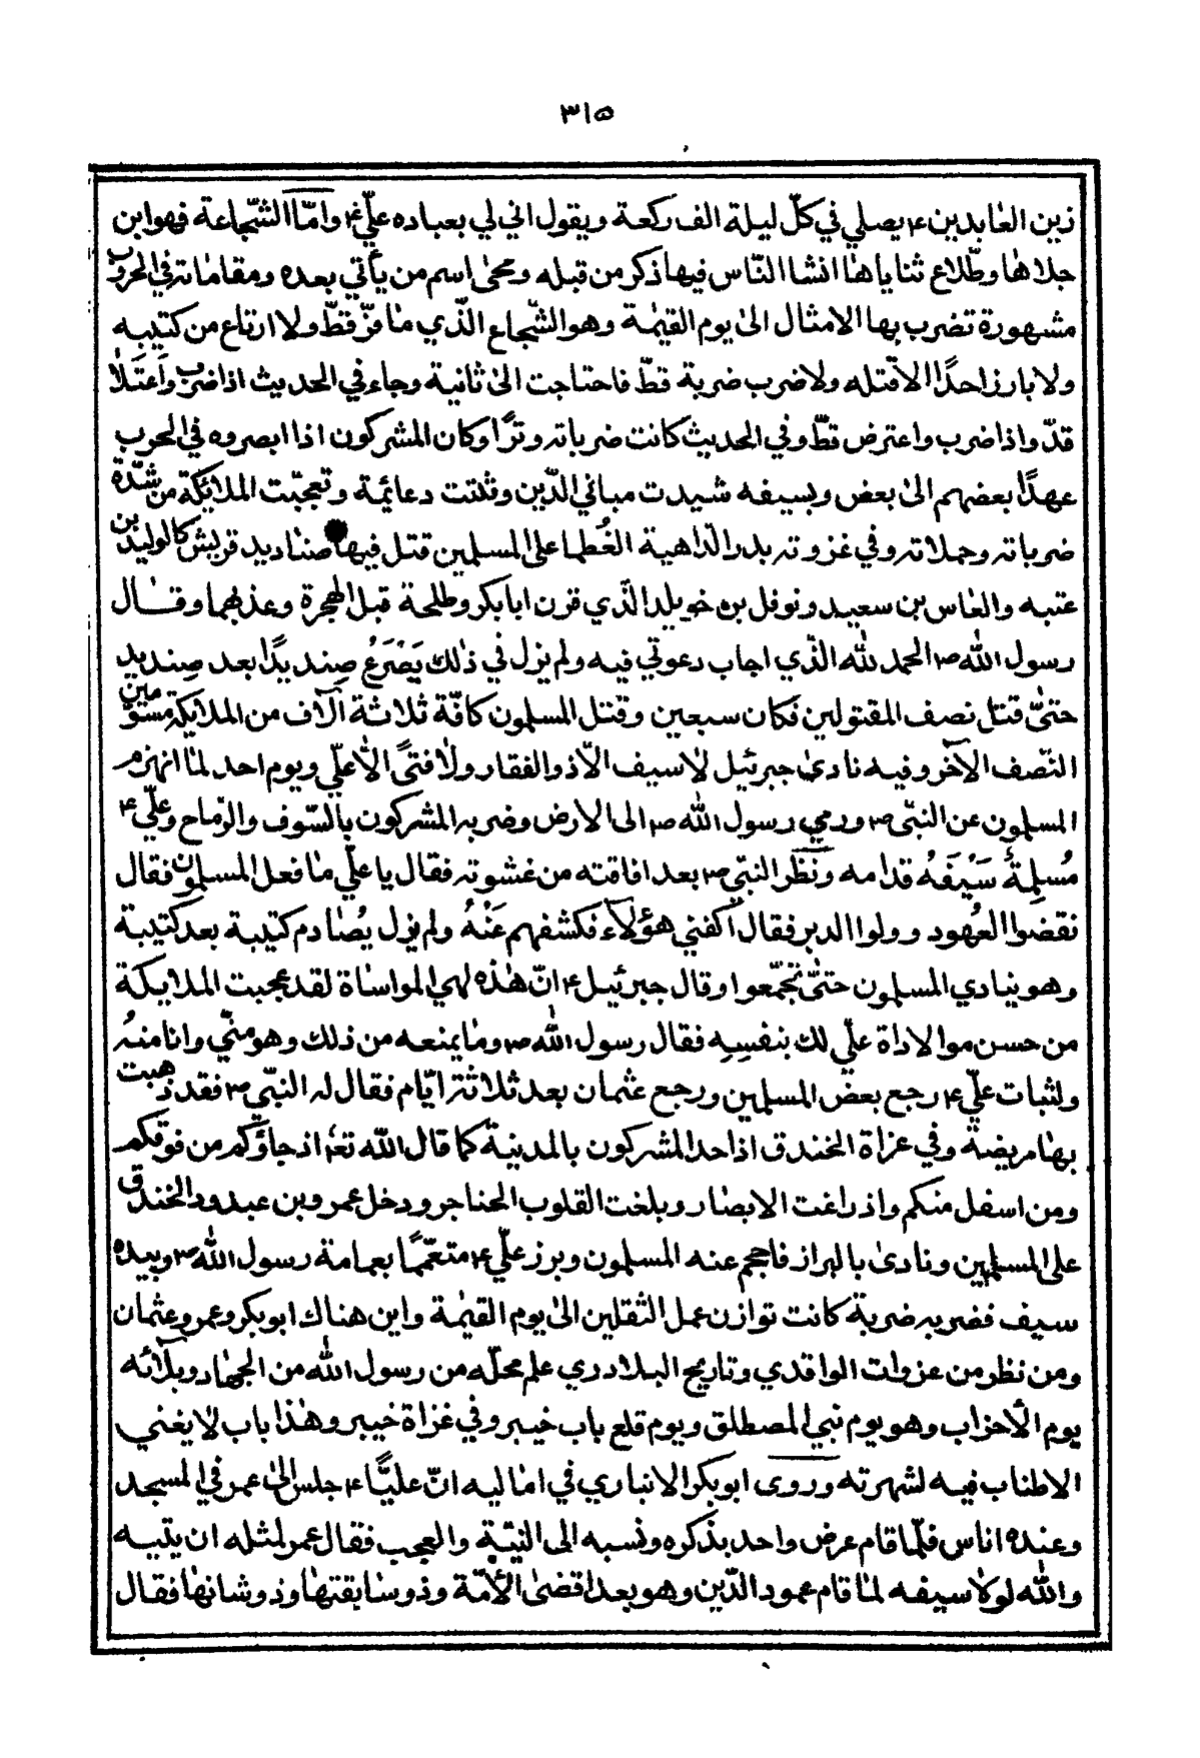 ٣١٥
زين العٰابدين ٤ يصلي في كلّ ليلة الف ركعة ويقول انٰي لي بعباده علّي ٤ وامّا الشّجاعة فهو ابن
جلاهٰا وطّلاع ثناياهٰا انشا النّاس فيها ذكر من قبله ومحىٰ اسم من يأتي بعده ومقامٰاته في الحروب
مشهورة تضرب بها الامثال الىٰ يوم القيٰمة وهو الشّجاع الّذي مٰا فرّ قطّ ولا ارتاع من كتيبه
ولا بارز احدًا الّا قتله ولا ضرب ضربة قطّ فاحتاجت الىٰ ثانية وجاء في الحديث اذا ضرب واَعتَلاٰ
قدّ واذا ضرب واعترض قطّ وفي الحديث كانت ضرباته وترًا وكان المشركون اذا ابصروه في الحرب
عهدًا بعضهم الىٰ بعض وبسيفه شيدت مباني الدّين وثبتت دعائمة وتعجّبت الملائكة من شدّة
ضرباته وحملاته وفي غزوته بدر الدّاهية العُظما على المسلمين قتل فيها صنٰاديد قريش كالوليد بن
عتبه والعٰاس بن سعيد ونوفل بن خويلد الّذي قرن ابا بكر وطلحة قبل الهجرة وعذبهما وقٰال
رسول الله ص الحمد لله الّذي اجاب دعوتي فيه ولم يزل في ذٰلك يَصْرَعُ صِنديدًا بعد صِنديد
حتىّٰ قتل نصف المقتولين فكان سبعين وقتل المسلمون كافّة ثلاثة آلاف من الملايكة مسوّمين
النّصف الآخر وفيه نادىٰ جبرئيل لاٰ سيف الاّ ذو الفقار ولاٰ فتىً الاّ علّي ويوم احد لمٰا انهزم
المسلمون عن النبّي ص ورمي رسول الله ص الى الارض وضربه المشركون بالسّوف والرّماح وعلّي ٤
مُسلِمةٌ سَيْفَهُ قدامه ونَظَر النبّي ص بعد افاقته من غشوته فقال يا علّي مٰا فعل المسلمون فقال
نقضوا العُهود وولوا الدبر فقال اكفني هؤلآء فكشفهم عَنْهُ ولم يزل يُصٰادم كتيبة بعد كتيبة
وهو ينادي المسلمون حتىّٰ تجّمعوا وقال جبرئيل ٤ انّ هٰذه لهي المواسٰاة لقد عجبت الملايكة
من حسن موالاداة علّي لك بنفسِهِ فقال رسول الله ص ومٰا يمنعه من ذلك وهو منّي وانا منهُ
ولثبات علّي ٤ رجع بعض المسلمين ورجع عثمان بعد ثلاثة ايّام فقال له النبّي ص فقد ذهبت
بهٰا مريضة وفي غزاة الخندق اذا حد المشركون بالمدينة كما قال الله تعٰه اذ جاؤكم من فوقكم
ومن اسفل منكم واذ زاغت الابصٰار وبلغت القلوب الحناجر ودخل عمرو بن عبدود الخندق
على المسلمين ونادىٰ بالبراز فاحجم عنه المسلمون وبرز علّي ٤ متعّممًا بعمامة رسول الله ص وبيده
سيف فضربه ضربة كانت توازن عمل الثقلين الىٰ يوم القيٰمة واين هناك ابو بكر وعمر وعثمان
ومن نظر من عزوات الواقدي وتاريخ البلادري علم محلّه من رسول الله من الجهٰاد وبلآئه
يوم الأحزاب وهو يوم نبي المصطلق ويوم قلع باب خيبر وفي غزاة خيبر وهٰذا باب لاٰ يغني
الاطناب فيه لشهرته وروى ابو بكر الانباري في امٰاليه انّ عليًّا ٤ جلس الىٰ عمر في المسجد
وعنده اناس فلّما قام عرض واحد بذكره ونسبه الى التيّة والعجب فقال عمر لمثله ان يتيه
والله لولاٰ سيفه لمٰا قام عمود الدّين وهو بعد اقضىٰ الأمّة وذو سٰابقتهٰا وذو شانهٰا فقال